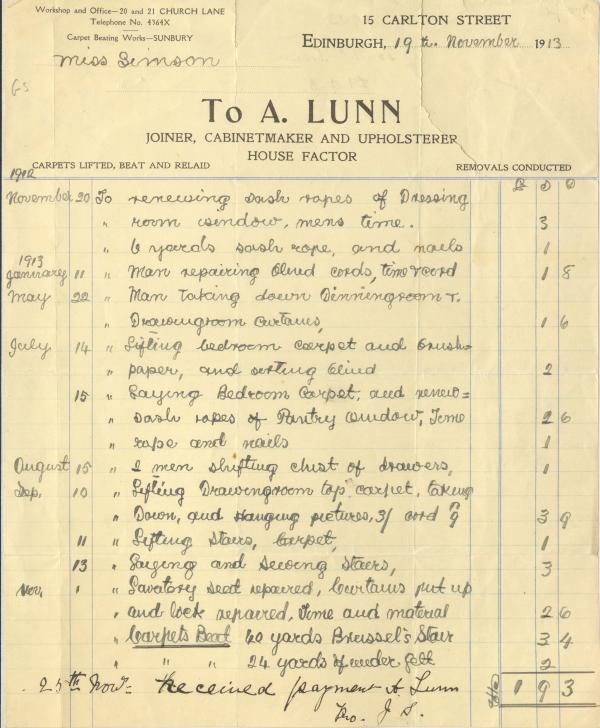 Workshop and Office—20 and 21 CHURCH LANE
Telephone No. 4364X
Carpet Beating Works—SUNBURY
15 CARLTON STREET
EDINBURGH, 19th. November 1913
Miss Simson
To A. LUNN
JOINER, CABINETMAKER AND UPHOLSTERER
HOUSE FACTOR
CARPETS LIFTED, BEAT AND RELAID
REMOVALS CONDUCTED
1912
November 20 To renewing sash ropes of Dressing
" room window, mens time. 3
" 6 yards sash rope, and nails 1
1913
January 11 " Man repairing blind cords, time & cord 1 8
May 22 " Man Taking down Dinningroom &
" Drawingroom Curtains, 1 6
July 14 " Lifting bedroom carpet and brush
" paper, and setting blind 2
15 " Laying Bedroom Carpet, and renew=
" sash ropes of Pantry window, Time 2 6
" rope and nails 1
August 15 " 2 men shifting chest of drawers, 1
Sep. 10 " Lifting Drawingroom top carpet, taking
" Down, and Hanging pictures, 3/ cord 9 3 9
11 " Lifting Stairs, Carpet, 1
13 " Laying and sewing Stairs, 3
Nov. 1 " Lavatory seat repaired, Curtains put up
" and lock repaired, Time and material 2 6
" Carpets Beat 60 yards Brussel's Stair 3 4
" " " 24 yards of under felt 2
25th Novr= Received payment A. Lunn 1 9 3
J. S.